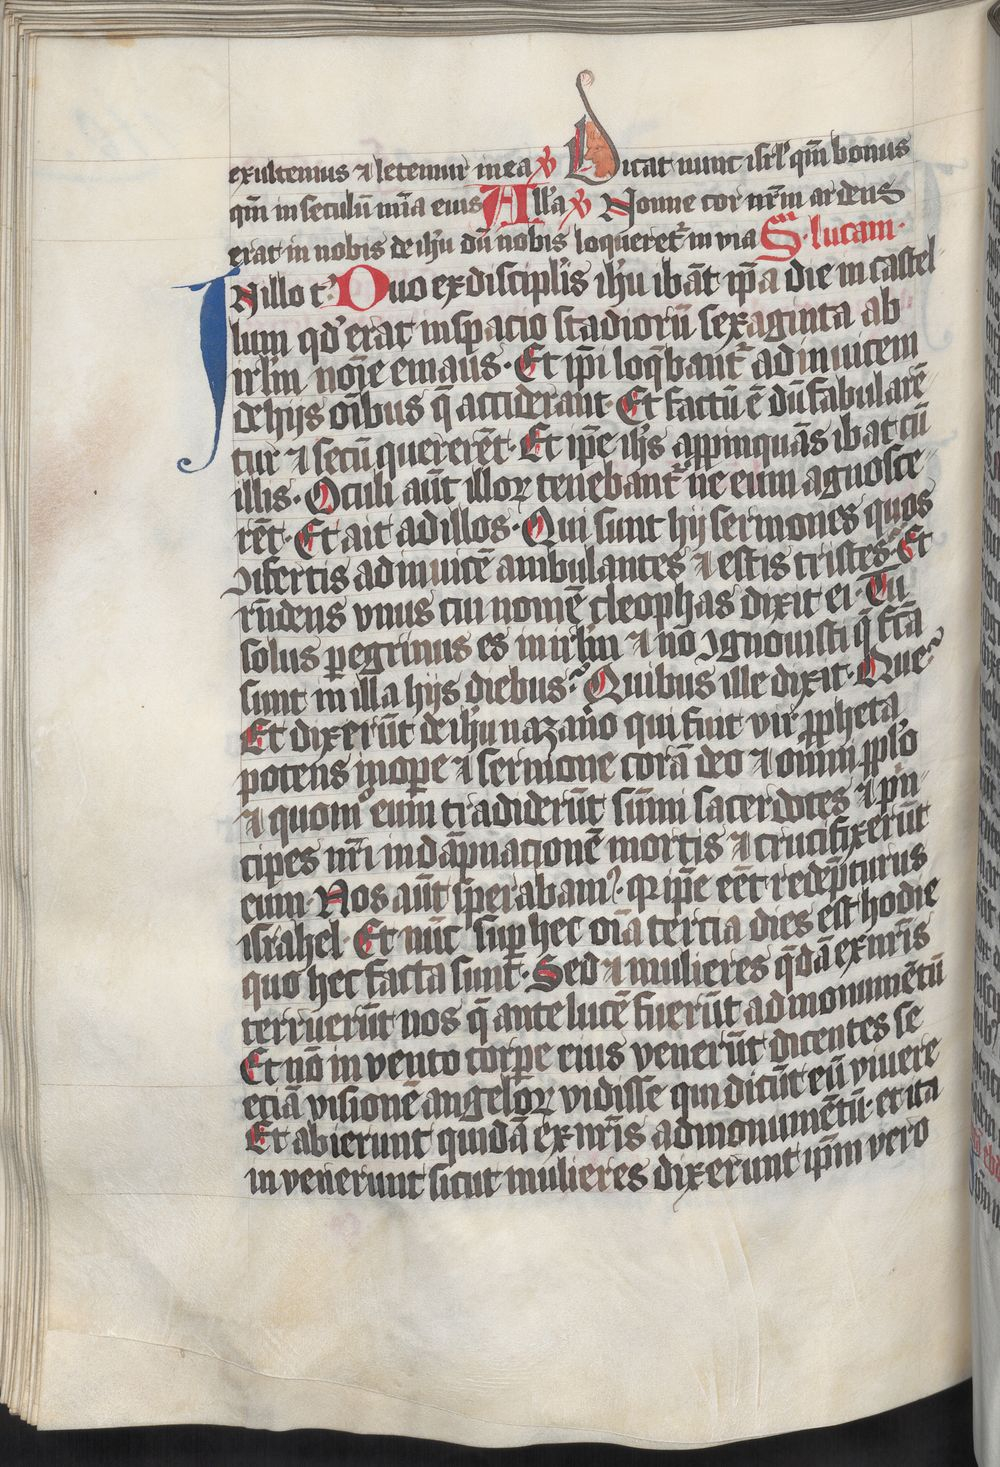 exultemus ⁊ letemur in ea ℣ Dicat nunc isrl' qm̄ bonus
qm̄ in seculū mīa eius All'a ℣ Nonne cor nr̄m ardens
erat in nobis de ih̄u dū nobis loqueret᷑ in via S. lucam.
INillo t᷑. Duo ex discipl'is ih̄u ibāt ip̄a die in castel
lum qd' erat in spacio stadiorū sexaginta ab
irl'm noīe emaus. Et ip̄i loq̄bant᷑ ad inuicem
de hijs oībus q̄ acciderant. Et factū ē dū fabularē
tur ⁊ secū quererēt. Et ip̄e ih̄s appinquās ibat cū
illis. Oculi aūt illoꝝ tenebant᷑ ne eum agnosce
rēt. Et ait ad illos. Qui sunt hij sermones quos
ꝯfertis ad inuicē ambulantes ⁊ estis tristes. Et
rn̄dens vnus cui nomē cleophas dixit ei. Tu
solus ꝑegrinus es in irl'm ⁊ nō ꝯgnouisti q̄ fc̄a
sunt in illa hijs diebus? Quibus ille dixit. Que?
Et dixerūt de ih̄u nazar̄no qui fuit vir ꝓpheta
potens in oꝑe ⁊ sermone corā deo ⁊ omni ppl'o
⁊ quom̊ eum tradiderūt sūmi sacerdotes ⁊ p̄n
cipes nr̄i in dāpnacionē mortis ⁊ crucifixerūt
eum. Nos aūt sperabam᷒. qꝛ ip̄e eēt redēpturus
israhel. Et nūc suꝑ hec oīa tercia dies est hodie
quo hec facta sunt. Sed ⁊ mulieres q̄dā ex nr̄is
terruerūt nos q̄ ante lucē fuerūt ad monumētū
Et nō in vento corꝑe eius venerūt dicentes se
eciā visionē angeloꝝ vidisse qui dicūt eū viuere
Et abierunt quidā ex nr̄is ad monumētū. et ita
in venerunt sicut mulieres dixerunt ip̄m vero